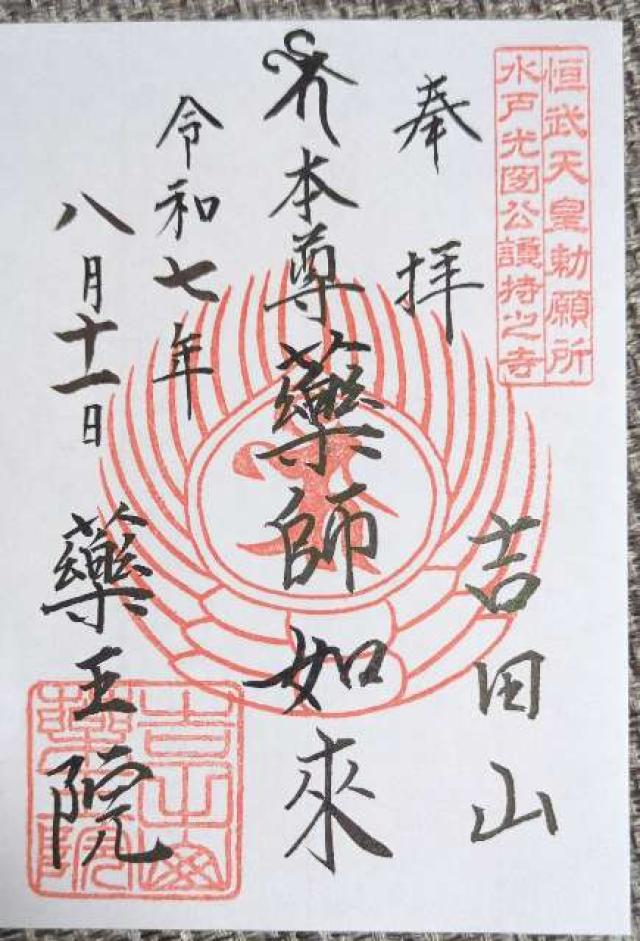 恒武天皇勅願所
水戸光圀公護持之寺
奉拝
吉田山
本尊藥師如來
令和七年
八月十一日
藥王院